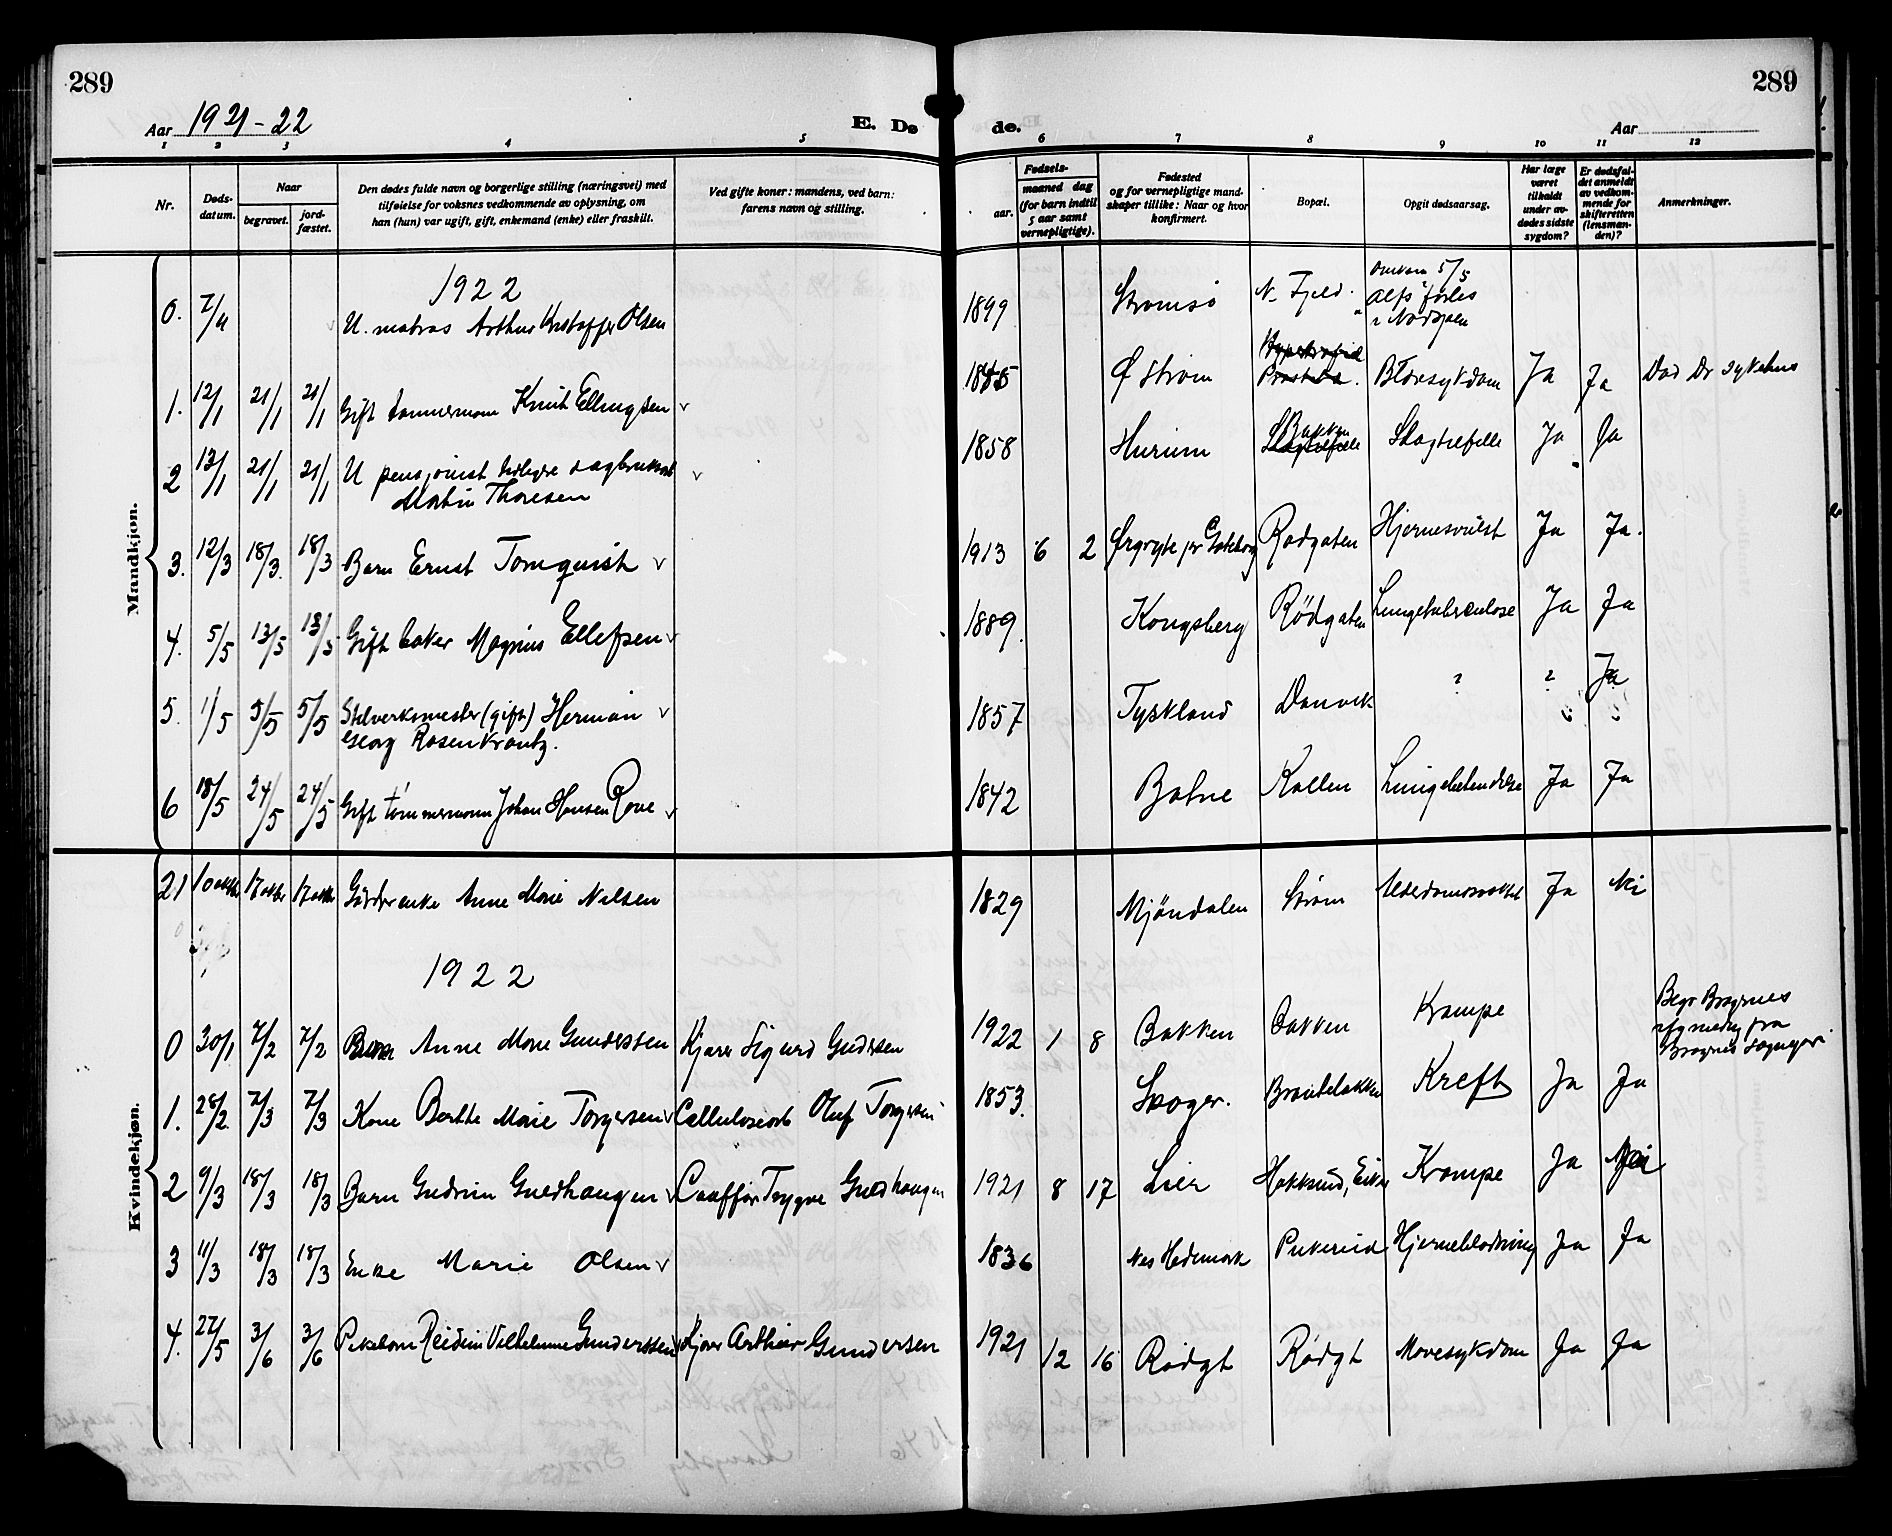 289
289
Aar 1921-22
E. Dø
de.
Aar
1 2 3 4 5 6 7 8 9 10 11 12
Nr.
Døds-
datum.
Naar
begravet.
jord-
fæstet.
Den dødes fulde navn og borgerlige stilling (næringsvei) med
tilføielse for voksnes vedkommende av oplysning, om
han (hun) var ugift, gift, enkemand (enke) eller fraskilt.
Ved gifte koner: mandens, ved barn:
farens navn og stilling.
Fødsels-
aar.
maaned dag
(for barn indtil
5 aar samt
vernepligtige).
Fødested
og for vernepligtige mand-
skaper tillike: Naar og hvor
konfirmert.
Bopæl.
Opgit dødsaarsag.
Har læge
været
tilkaldt
under av-
dødes sidste
sygdom?
Er dødsfal-
det anmeldt
av vedkom-
mende for
skifteretten
(lensman-
den)?
Anmerkninger.
Mandkjøn.
1922
0. 7/4 U. matros Arthur Kristoffer Olsen 1899 Strømsø N. Fjeld. Omkom 5/5
"Alfs" forlis
i Nordsjøen
1. 12/1 21/1 21/1 Gift tømmermann Knut Ellingsen v 1845 Ø Strøm Hypertrofia
Prostata. Blæresykdom Ja Ja Død Dr sykehus
2 13/1 21/1 21/1 U pensjonist tidligere sagbruksarb
Martin Thoresen v 1858 Hurum Bakken
Slagtilfælle Slagtilfelle Ja Ja
3. 12/3 18/3. 18/3 Barn Ernst Tornquist v 1913 6 2 Ørgryte pr Gøteborg Rødgaten Hjernesvulst Ja Ja.
4. 5/5 13/5 13/5 Gift baker Magnus Ellefsen v 1889. Kongsberg Rødgaten Lungetuberculose Ja Ja
5. 1/5 5/5 5/5 Stolverksmester (gift) Herman v
Georg Rosenkrantz. 1857 Tyskland Danvik ? ? Ja
6 18/5 24/5 24/5 Gift tømmermann Johan Hansen Rove v 1842 Botne Kollen Lungebetendelse Ja Ja
Kvindekjøn.
21 10 oktbr 17 oktbr 17 oktbr Gårdbr enke Anne Marie Nilsen 1829 Mjøndalen Strøm Alderdomssvakhet Ja Nei
1922
0 30/1 7/2 7/2 Barn Anne Marie Gundersen Kjører Sigurd Gundersen 1922 1 8 Bakken Bakken Krampe Begr Bragernes
efg meding fra
Bragnes sognepr.
1. 28/2 7/3 7/3 Kone Berthe Marie Torgersen v Cellulosearb Oluf Torgersen 1853. Skoger. Brandteløkken Kreft Ja Ja
2 9/3 18/3 18/3 Barn Gudrun Guldhaugen v Chauffør Trygve Guldhaugen 1921 8 17 Lier Hokksund, Eiker Krampe Ja Nei
3 11/3 18/3 18/3 Enke Marie Olsen v 1836 Nes Hedemark Pukerud Hjerneblødning Ja Ja
4. 27/5 3/6 3/6 Pikebarn Reidun Vilhelmine Gunderssen v Kjører Arthur Gundersen 1921 12 16 Rødgt Rødgt Mavesykdom Ja Ja